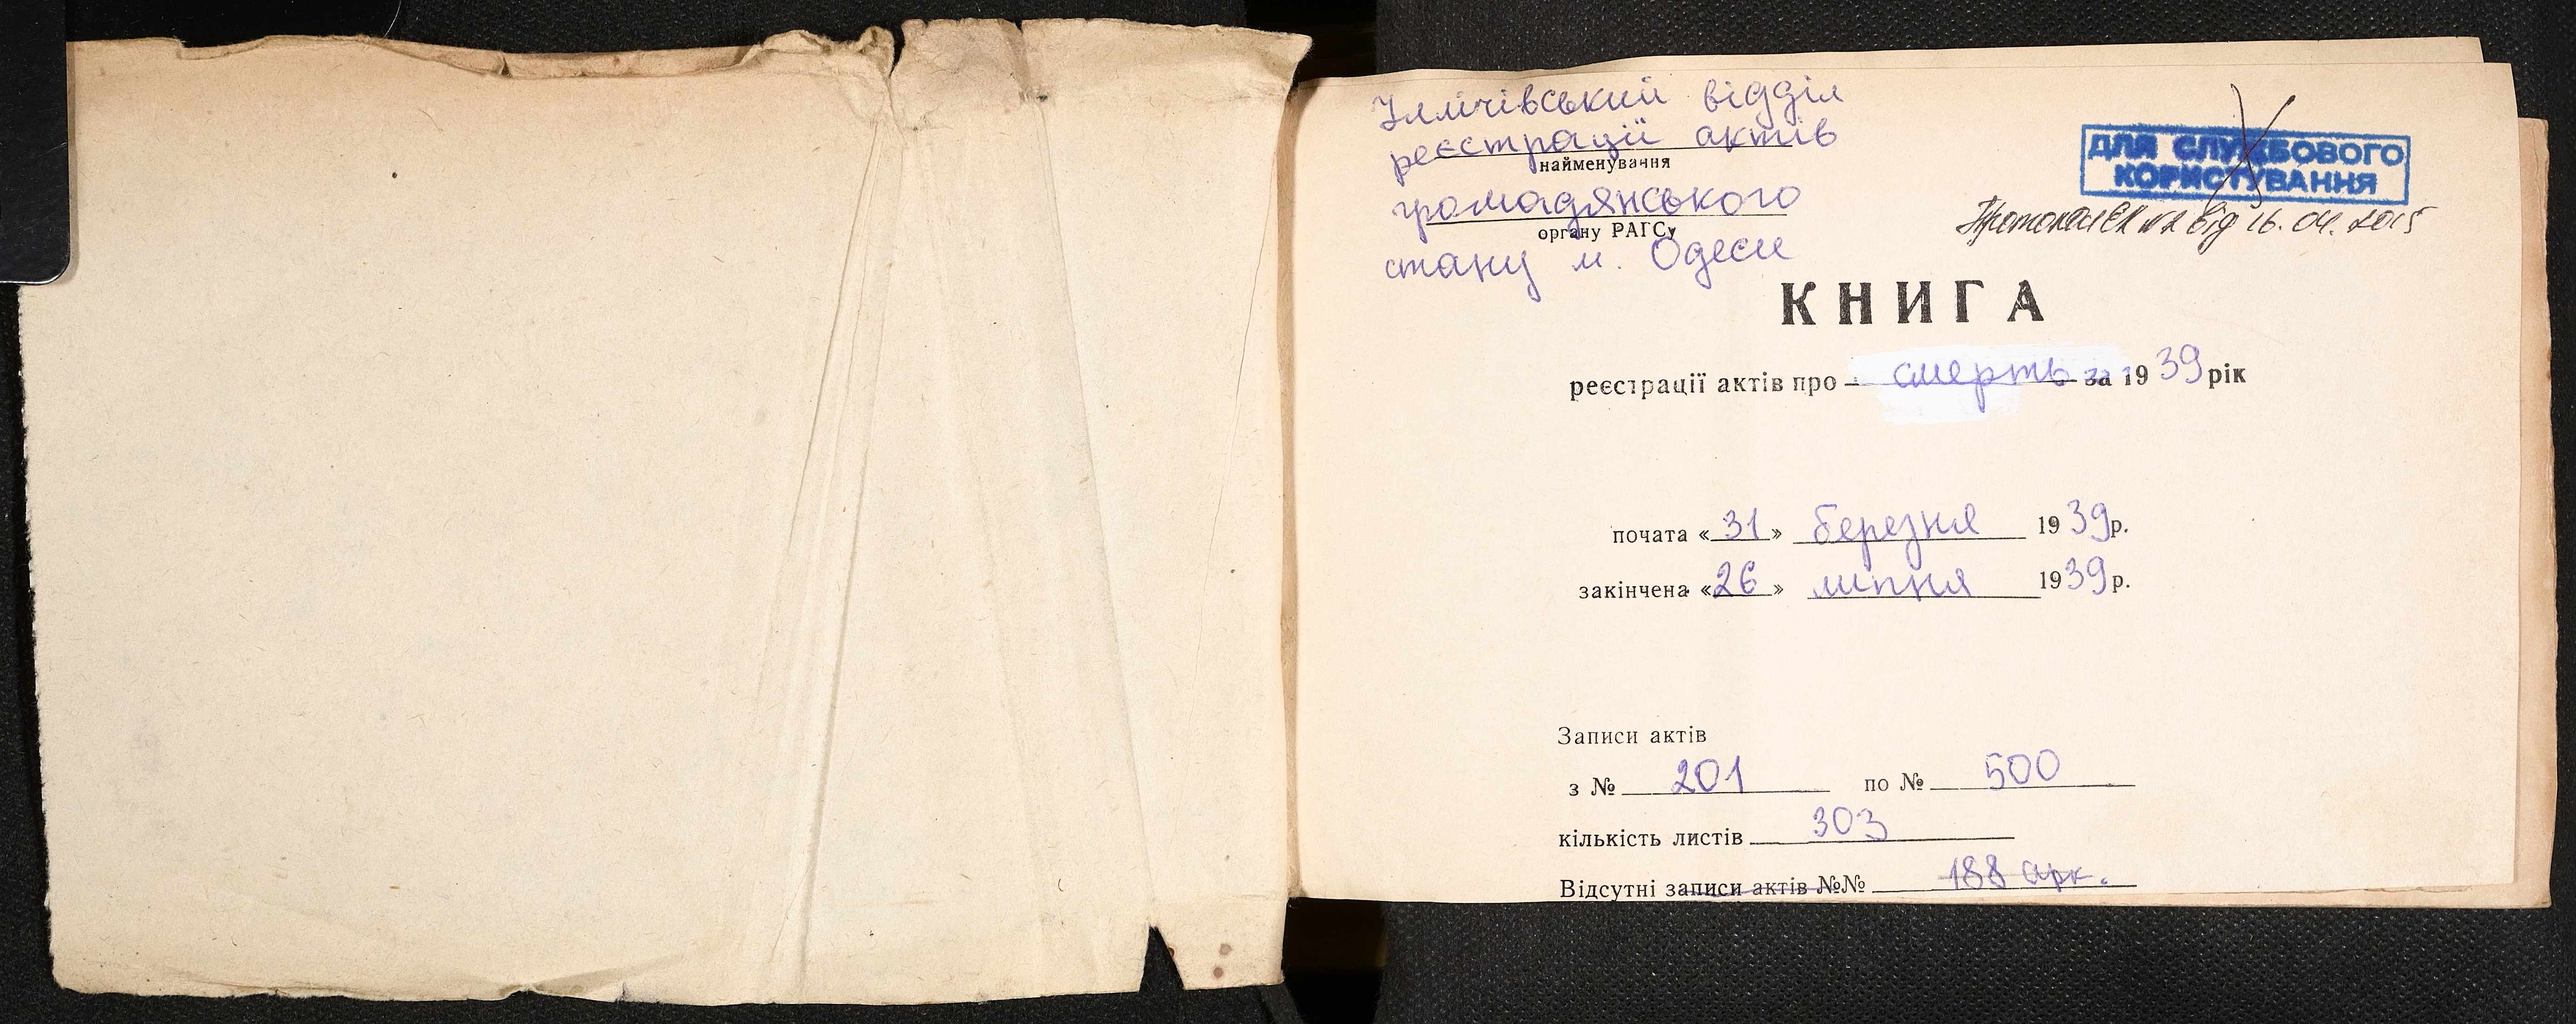 Іллічівський відділ
реєстрації актів
найменування
громадянського
органу РАГСу
стану м. Одеси
ДЛЯ СЛУЖБОВОГО
КОРИСТУВАННЯ
Протокол ЕК №2 від 16.04.2015
КНИГА
реєстрації актів про смерть за 1939 рік
почата «31» березня 1939 р.
закінчена «26» липня 1939 р.
Записи актів
з № 201 по № 500
кількість листів 303
Відсутні записи актів №№ 188 арк.